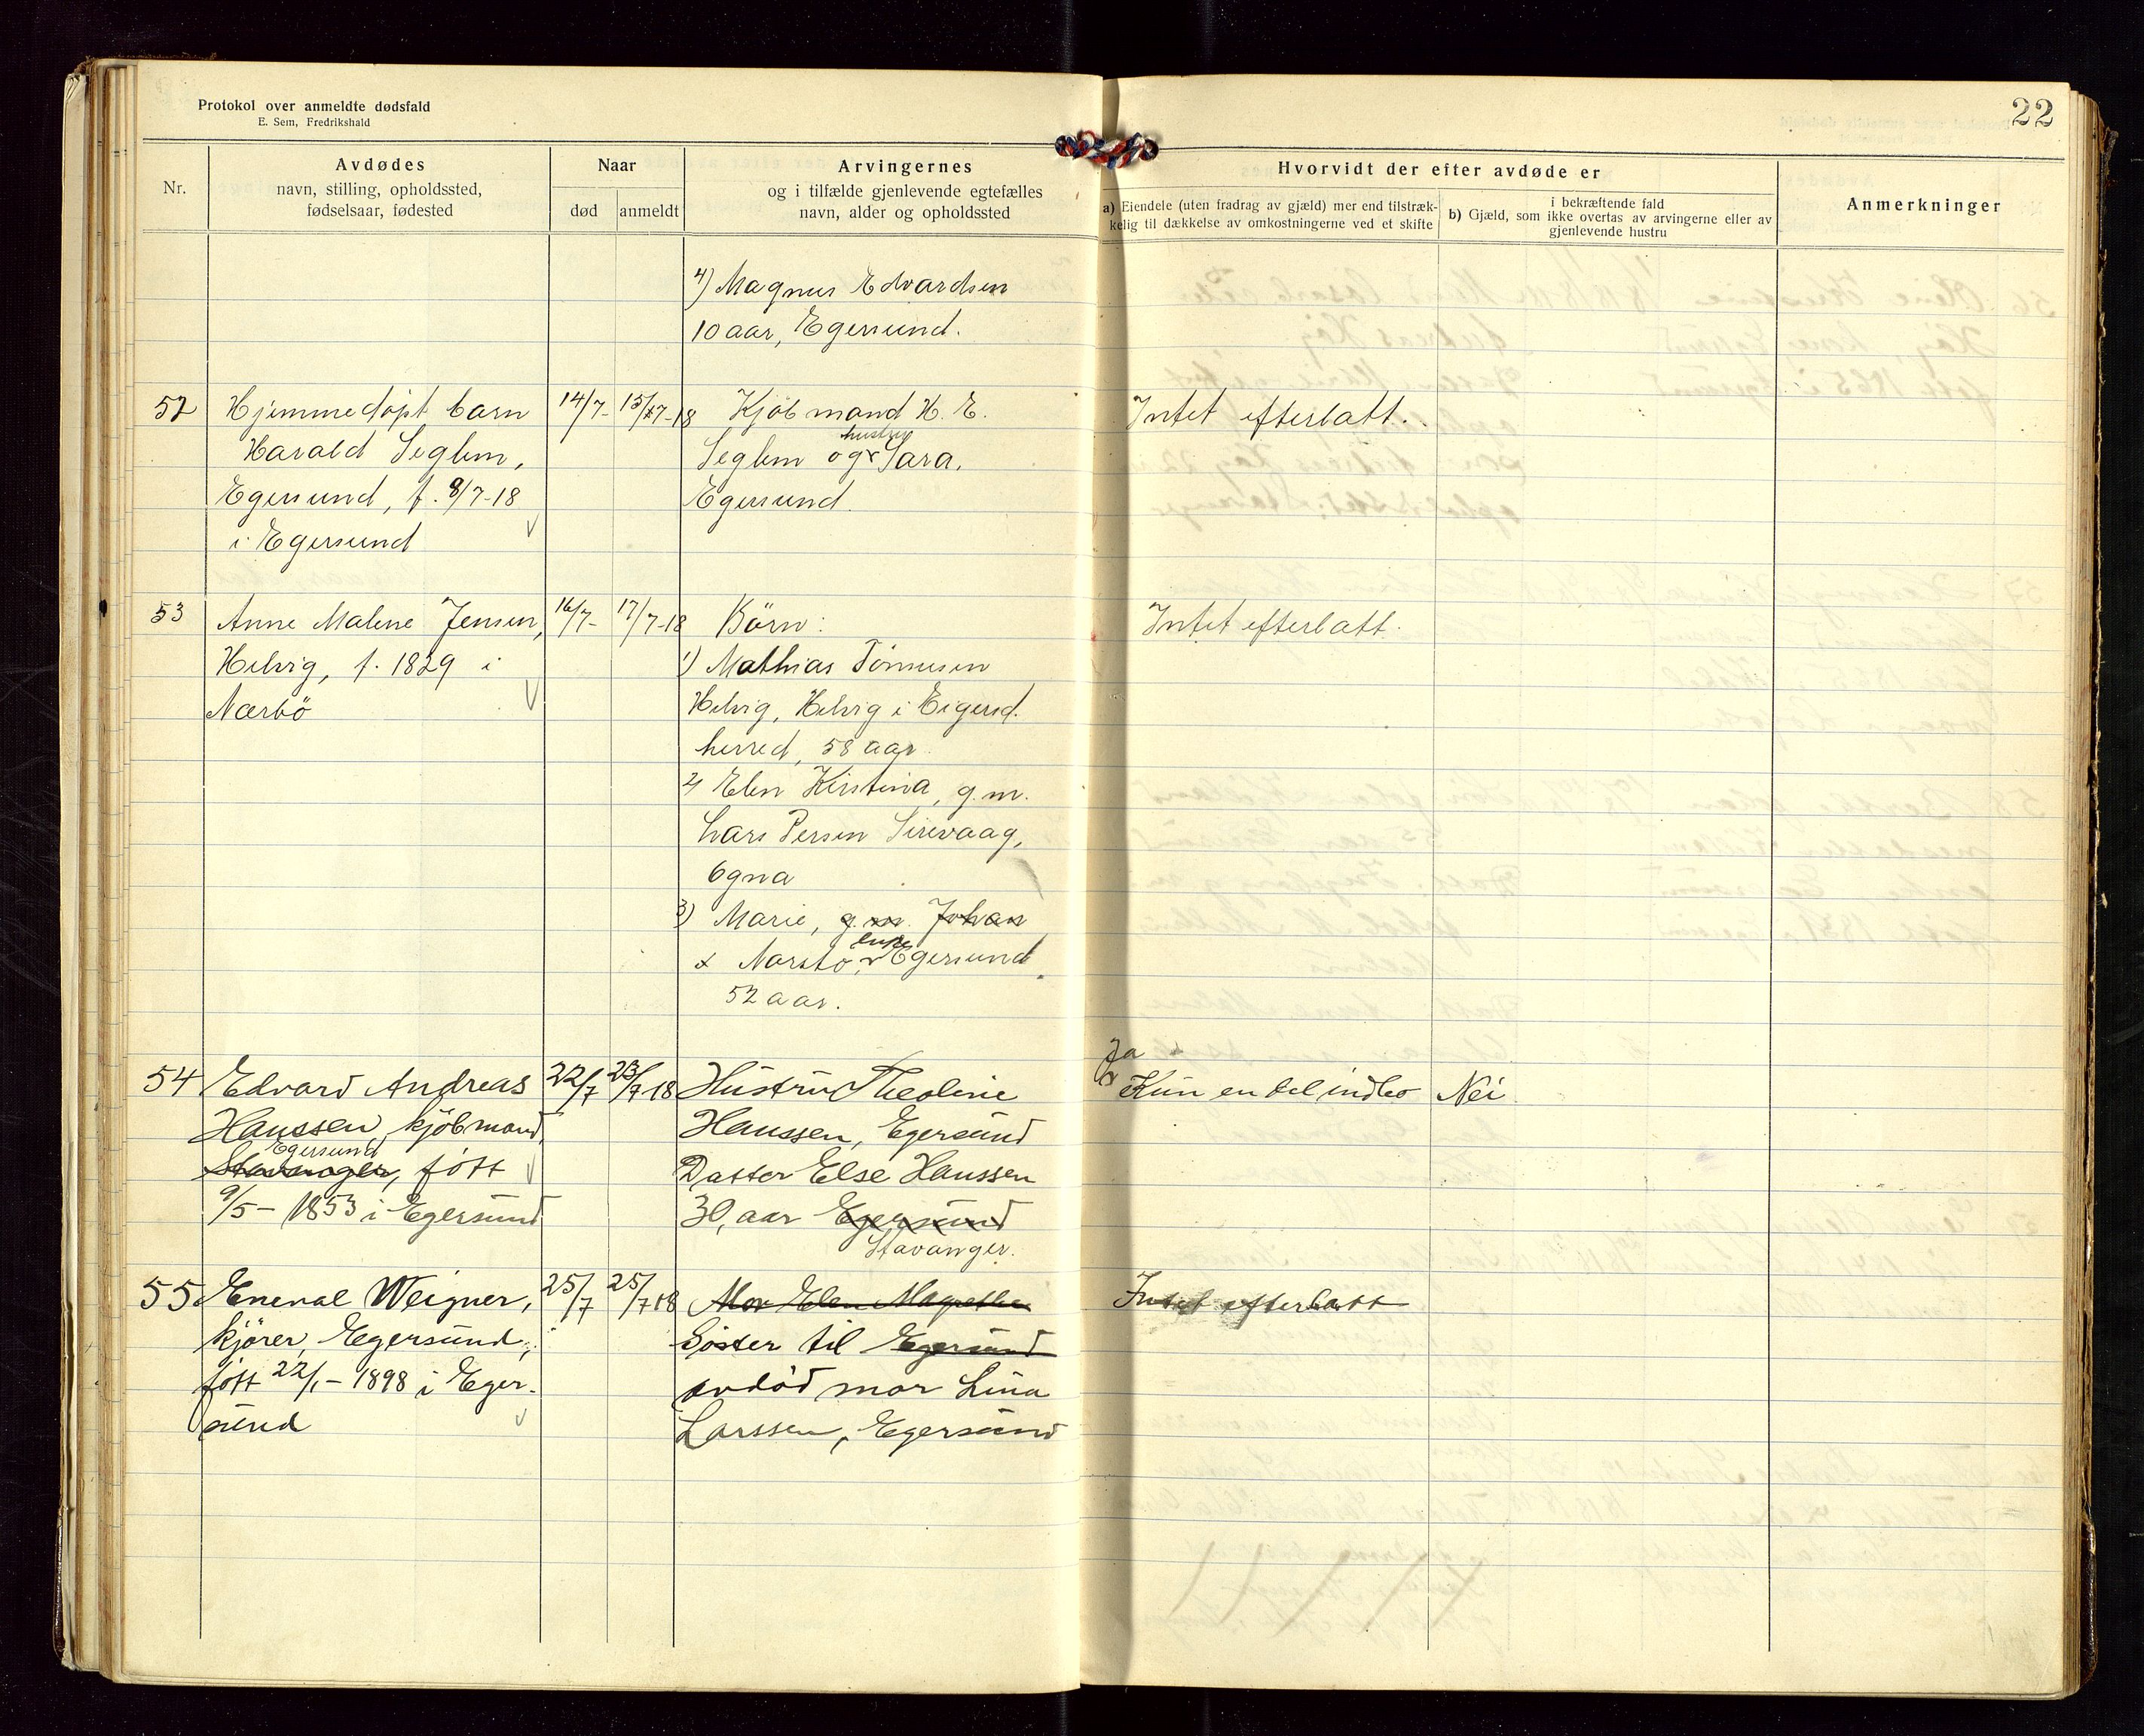 Protokol over anmeldte dødsfald
E. Sem, Fredrikshald
22
Nr.
Avdødes
navn, stilling, opholdssted,
fødselsaar, fødested
Naar
død
anmeldt
Arvingernes
og i tilfælde gjenlevende egtefælles
navn, alder og opholdssted
Hvorvidt der efter avdøde er
a) Eiendele (uten fradrag av gjæld) mer end tilstræk-
kelig til dækkelse av omkostningerne ved et skifte
i bekræftende fald
b) Gjæld, som ikke overtas av arvingerne eller av
gjenlevende hustru
Anmerkninger
4) Magnus Edvardsen
10 aar, Egersund.
52
Hjemmedøpt barn
Harald Seglem,
Egersund, f. 8/7-18
i Egersund
14/7-
15/7-18
Kjøbmand H. E.
hustru
Seglem og Sara,
Egersund.
Intet efterlatt.
53
Anne Malene Jensen,
Helvig, f. 1829 i
Nærbö
16/7-
17/7-18
Börn:
1) Mathias Tönnesen
Helvig, Helvig i Eigersd.
herred, 58 aar.
2) Elen Kirstina, g.m.
Lars Persen Sirevaag,
Ogna
3) Marie, g.m. Johan
enke
x Narstö, Egersund
52 aar.
Intet efterlatt.
54
Edvard Andreas
Hanssen, kjöbmand,
Egersund
Stavanger, fött
9/5- 1853 i Egersund
22/7
23/7-18
Hustru Theoline
Hanssen, Egersund
Datter Else Hanssen
30, aar Egersund
Stavanger.
Ja
Kun en del indbo
Nei
55
Eneval Weigner,
kjörer, Egersund,
fött 22/1- 1898 i Eger-
sund
25/7
25/7 18
Mor Elen Magrethe
Söster til Egersund
avdöd mor Lina
Larssen, Egersund
Intet efterlatt